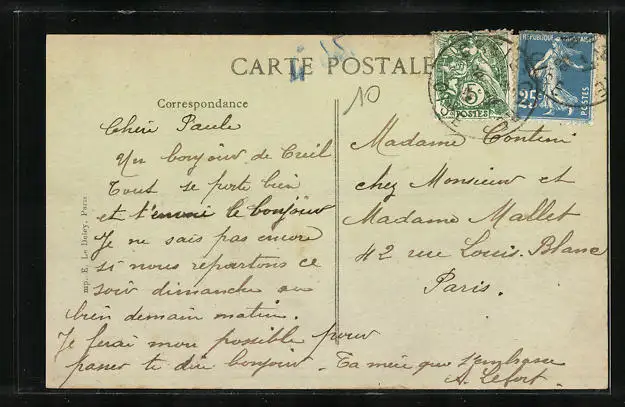 CARTE POSTALE
10
Correspondance
Chère Paule
Un bonjour de Creil
Tout se porte bien
et t'envoie le bonjour
Je ne sais pas encore
si nous repartons ce
soir dimanche ou
bien demain matin.
Je ferai mon possible pour
passer te dire bonjour. Ta mère que t'embrasse
A. Lefort.
Madame Contini
chez Monsieur et
Madame Mallet
42 rue Louis-Blanc
Paris.
RÉPUBLIQUE FRANÇAISE
25c
POSTES
5c
POSTES
Imp. E. Le Deley, Paris